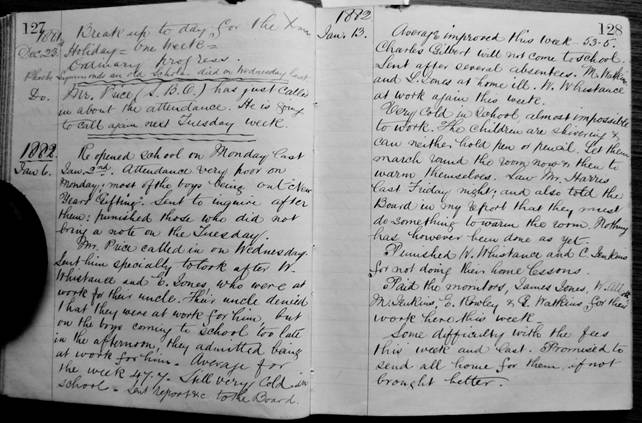 127
1881 Break up to day for the Xmas
Dec. 23. Holiday = One Week =
Ordinary progress.
Simmonds an old Scholar died on Wednesday last
Do. Mr. Price (S.B.O.) has just called
in about the attendance. He is going
to call again next Tuesday week.
1882. Re opened school on Monday last
Jan. 6. Jan. 2nd. Attendance very poor on
Monday, most of the boys being out "New
Years Gifting". Sent to inquire after
them: punished those who did not
bring a note on the Tuesday.
Mr. Price called in on Wednesday.
Sent him specially to look after W.
Whistance and E. Jones, who were at
work for their uncle. Their uncle denied
that they were at work for him, but
on the boys coming to school too late
in the afternoon, they admitted being
at work for him. Average for
the week 47.7. Still very cold in
school. Sent report &c to the Board.
1882 128
Jan. 13. Average improved this week 53.5.
Charles Gilbert will not come to school.
Sent after several absentees. M. Watkins
and L. Jones at home ill. W. Whistance
at work again this week.
Very cold in school, almost impossible
to work. The children are shivering &
can neither hold pen or pencil. Let them
march round the room now & then to
warm themselves. Saw Mr. Harris
last Friday night, and also told the
Board in my report that they must
do something to warm the room. Nothing
has however been done as yet.
Punished W. Whistance and C. Jenkins
for not doing their home lessons.
Paid the monitors, James Jones, W.
M. Jenkins, E. Rowley & E. Watkins, for their
work here this week.
Some difficulty with the fees
this week and last. Promised to
send all home for them, if not
brought better.